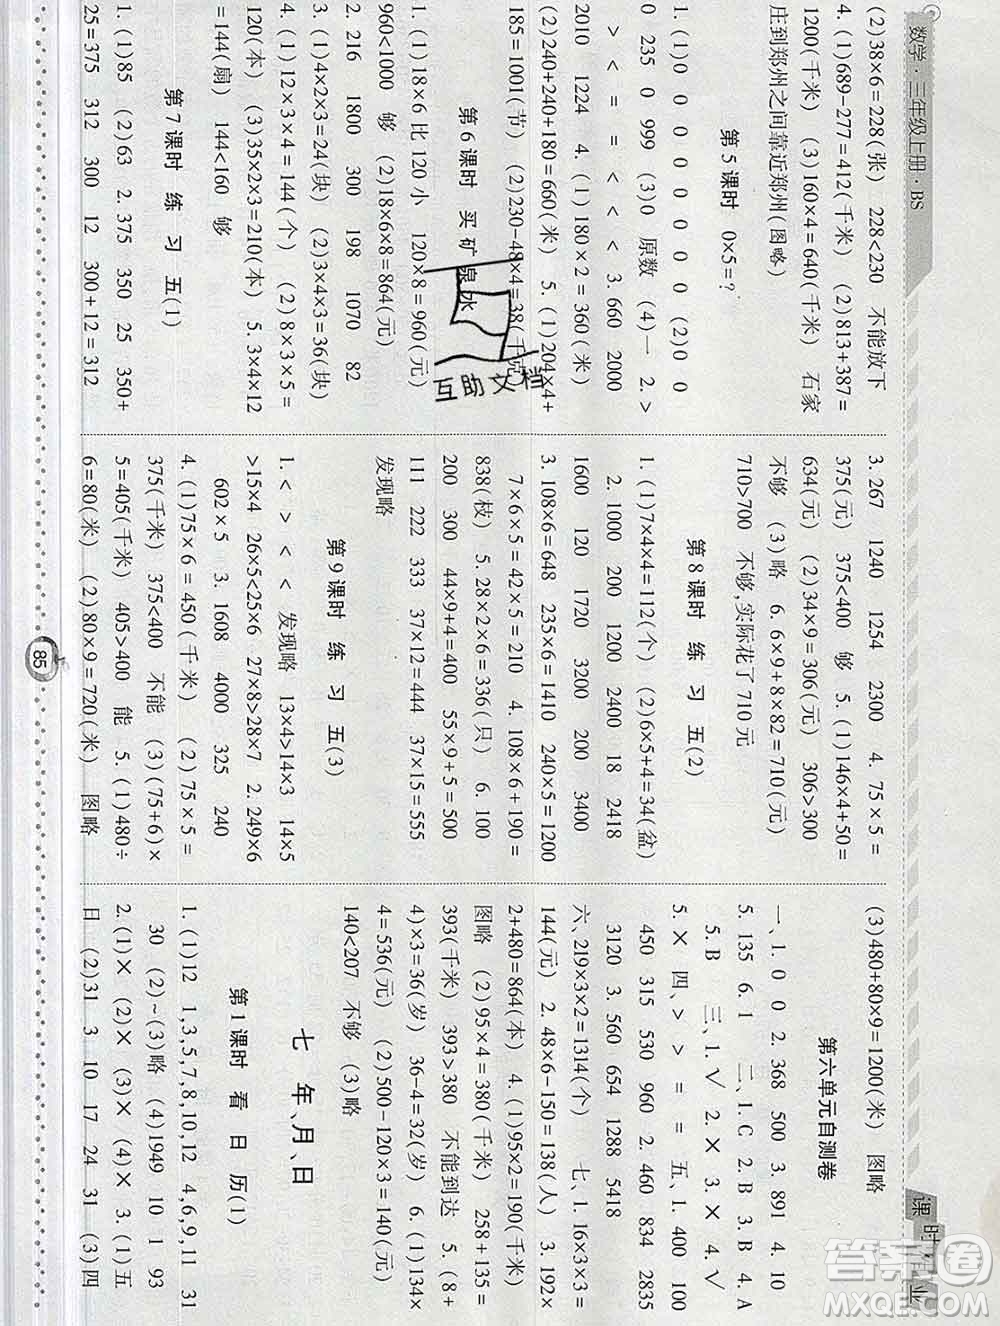 数学·三年级上册·BS
(2)38×6=228(张) 228<230 不能放下
4. (1)689-277=412(千米) (2)813+387=
1200(千米) (3)160×4=640(千米) 石家
庄到郑州之间靠近郑州(图略)
第5课时 0×5=?
1. (1)0 0 0 0 0 0 0 0 (2)0 0
0 235 0 999 (3)0 原数 (4)一 2. >
> < = = < < 3. 660 2000
2010 1224 4. (1)180×2=360(米)
(2)240+240+180=660(米) 5. (1)204×4+
185=1001(节) (2)230-48×4=38(千克)
第6课时 买矿泉水
1. (1)18×6比120小 120×8=960(元)
960<1000 够 (2)18×6×8=864(元)
2. 216 1800 300 198 1070 82
3. (1)4×2×3=24(块) (2)3×4×3=36(块)
4. (1)12×3×4=144(个) (2)8×3×5=
120(本) (3)35×2×3=210(本) 5. 3×4×12
=144(扇) 144<160 够
第7课时 练习五(1)
1. (1)85 (2)63 2. 375 350 25 350+
25=375 312 300 12 300+12=312
3. 267 1240 1254 2300 4. 75×5=
375(元) 375<400 够 5. (1)146×4+50=
634(元) (2)34×9=306(元) 306>300
不够 (3)略 6. 6×9+8×82=710(元)
710>700 不够,实际花了710元
第8课时 练习五(2)
1. (1)7×4×4=112(个) (2)6×5+4=34(盆)
2. 1000 200 1200 2400 18 2418
1600 120 1720 3200 200 3400
3. 108×6=648 235×6=1410 240×5=1200
7×6×5=42×5=210 4. 108×6+190=
838(枝) 5. 28×2×6=336(只) 6. 100
200 300 44×9+4=400 55×9+5=500
111 222 333 37×12=444 37×15=555
发现略
第9课时 练习五(3)
1. < > < < 发现略 13×4>14×3 14×5
>15×4 26×5<25×6 27×8>28×7 2. 249×6
602×5 3. 1608 4000 325 240
4. (1)75×6=450(千米) (2)75×5=
375(千米) 375<400 不能 (3)(75+6)×
5=405(千米) 405>400 能 5. (1)480÷
6=80(米) (2)80×9=720(米) 图略
(3)480+80×9=1200(米) 图略
第六单元自测卷
一、1. 0 0 2. 368 500 3. 891 4. 10
5. 135 6. 1 二、1. C 2. B 3. B 4. A
5. B 三、1. √ 2. × 3. × 4. √
5. × 四、> > = = 五、1. 400 100
450 315 530 960 2. 460 834 2835
3120 3. 560 654 1288 5418
六、219×3×2=1314(个) 七、1. 16×3×3=
144(元) 2. 48×6-150=138(人) 3. 192×
2+480=864(本) 4. (1)95×2=190(千米)
图略 (2)95×4=380(千米) 258+135=
393(千米) 393>380 不能到达 5. (8+
4)×3=36(岁) 36-4=32(岁) 6. (1)134×
4=536(元) (2)500-120×3=140(元)
140<207 不够 (3)略
七 年、月、日
第1课时 看日历(1)
1. (1)12 1,3,5,7,8,10,12 4,6,9,11 31
30 (2)~(3)略 (4)1949 10 1 93
2. (1)× (2)× (3)× (4)× 3. (1)五
日 (2)31 3 10 17 24 31 (3)四
课时作业
85
互助文档
答案圈
MXQE.COM